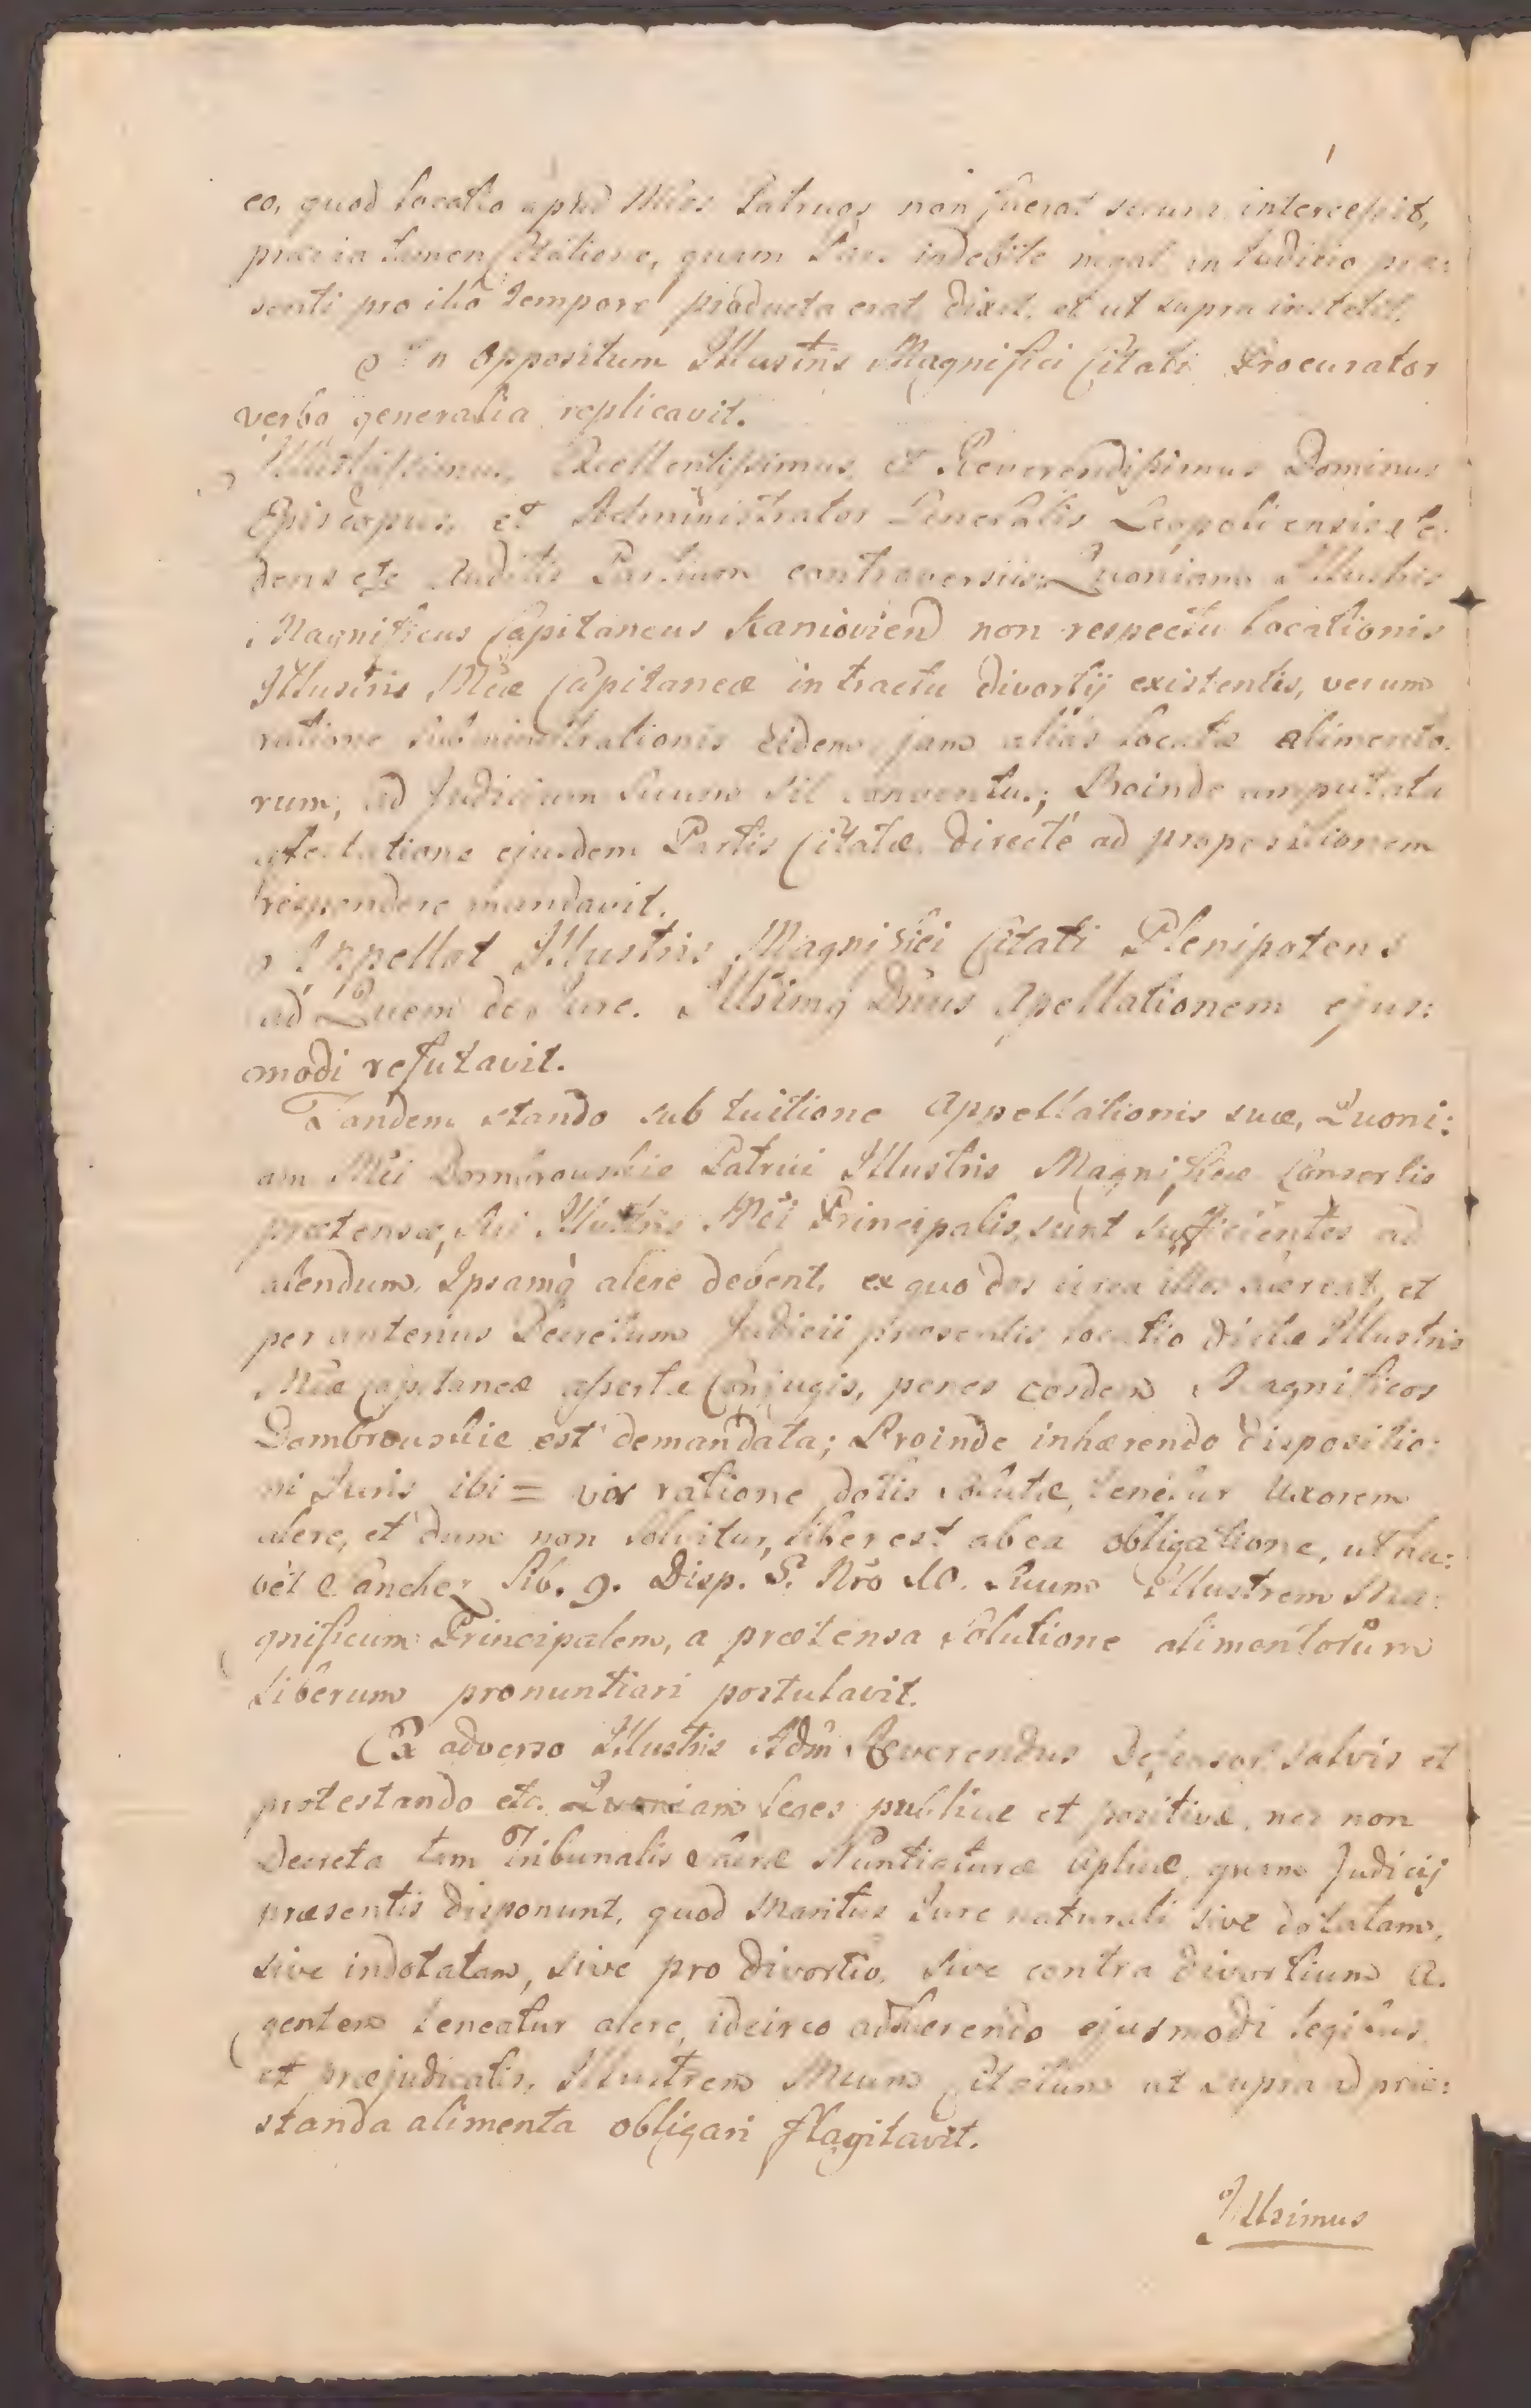 eo, quod locatio apud Mcos Patruos non fuerat secura intercessit,
prævia tamen Citatione, quam Pars indebite negat in Judicio præ:
senti pro illo tempore producta erat, dixit, et ut supra institit.
In Oppositum Illustris Magnifici Citati Procurator
verbo generalia replicavit.
Illustrissimus, Excellentissimus, et Reverendissimus Dominus
Episcopus, et Administrator Generalis Leopoliensis
dens etc Auditis Partium controversiis; Quoniam Illustris
Magnificus Capitaneus Kaniovien non respectu locationis
Illustris Mcæ Capitaneæ in tractu divortij existentis, verum
ratione subministrationis eidem jam alias locatæ alimento:
rum, ad Judicium Suum sit conventus; Proinde amputata
ejusdem Partis Citatæ directe ad propositionem
respondere mandavit.
Appellat Illustris Magnifici Citati Plenipotens
ad Quem de Jure. Illsimq Dnus Apellationem ejus:
modi refutavit.
Tandem stando sub tuitione Appellationis suæ, Quoni:
am Mci Dombrowskie Patrui Illustris Magnificæ Consortis
prætensæ, sui Illustris Mci Principalis, sunt sufficientes ad
alendum, Ipsamq alere debent, ex quo dos circa illos hæreat, et
per anterius Decretum Judicii præsentis locatio dictæ Illustris
Mcæ Capitaneæ assertæ Conjugis, penes eosdem Magnificos
Dombrouskie est demandata; Proinde inhærendo dispositio:
ni Juris ibi = vir ratione dotis solutæ, tenetur Uxorem
alere, et dum non solvitur, liber est ab ea obligatione, ut ha:
bet Sanchez Lib. 9. Disp. 5. Nro 10. Suum Illustrem Ma:
gnificum Principalem, a prætensa Solutione alimentorum
liberum pronuntiari postulavit.
Ex adverso Illustris Adm Reverendus Defensor salvis et
protestando etc. Quoniam leges publicæ et positivæ, nec non
Decreta tam Tribunalis Sacræ Nuntiaturæ Aplicæ, quam Judicij
præsentis disponunt, quod Maritus Jure naturali sive dotatam,
sive indotatam, sive pro divortio, sive contra divortium A.
gentem teneatur alere, idcirco adhærendo ejusmodi legibus
et præjudicatis, Illustrem Mcum Citatum ut supra ad præ:
standa alimenta obligari flagitavit.
Illsimus